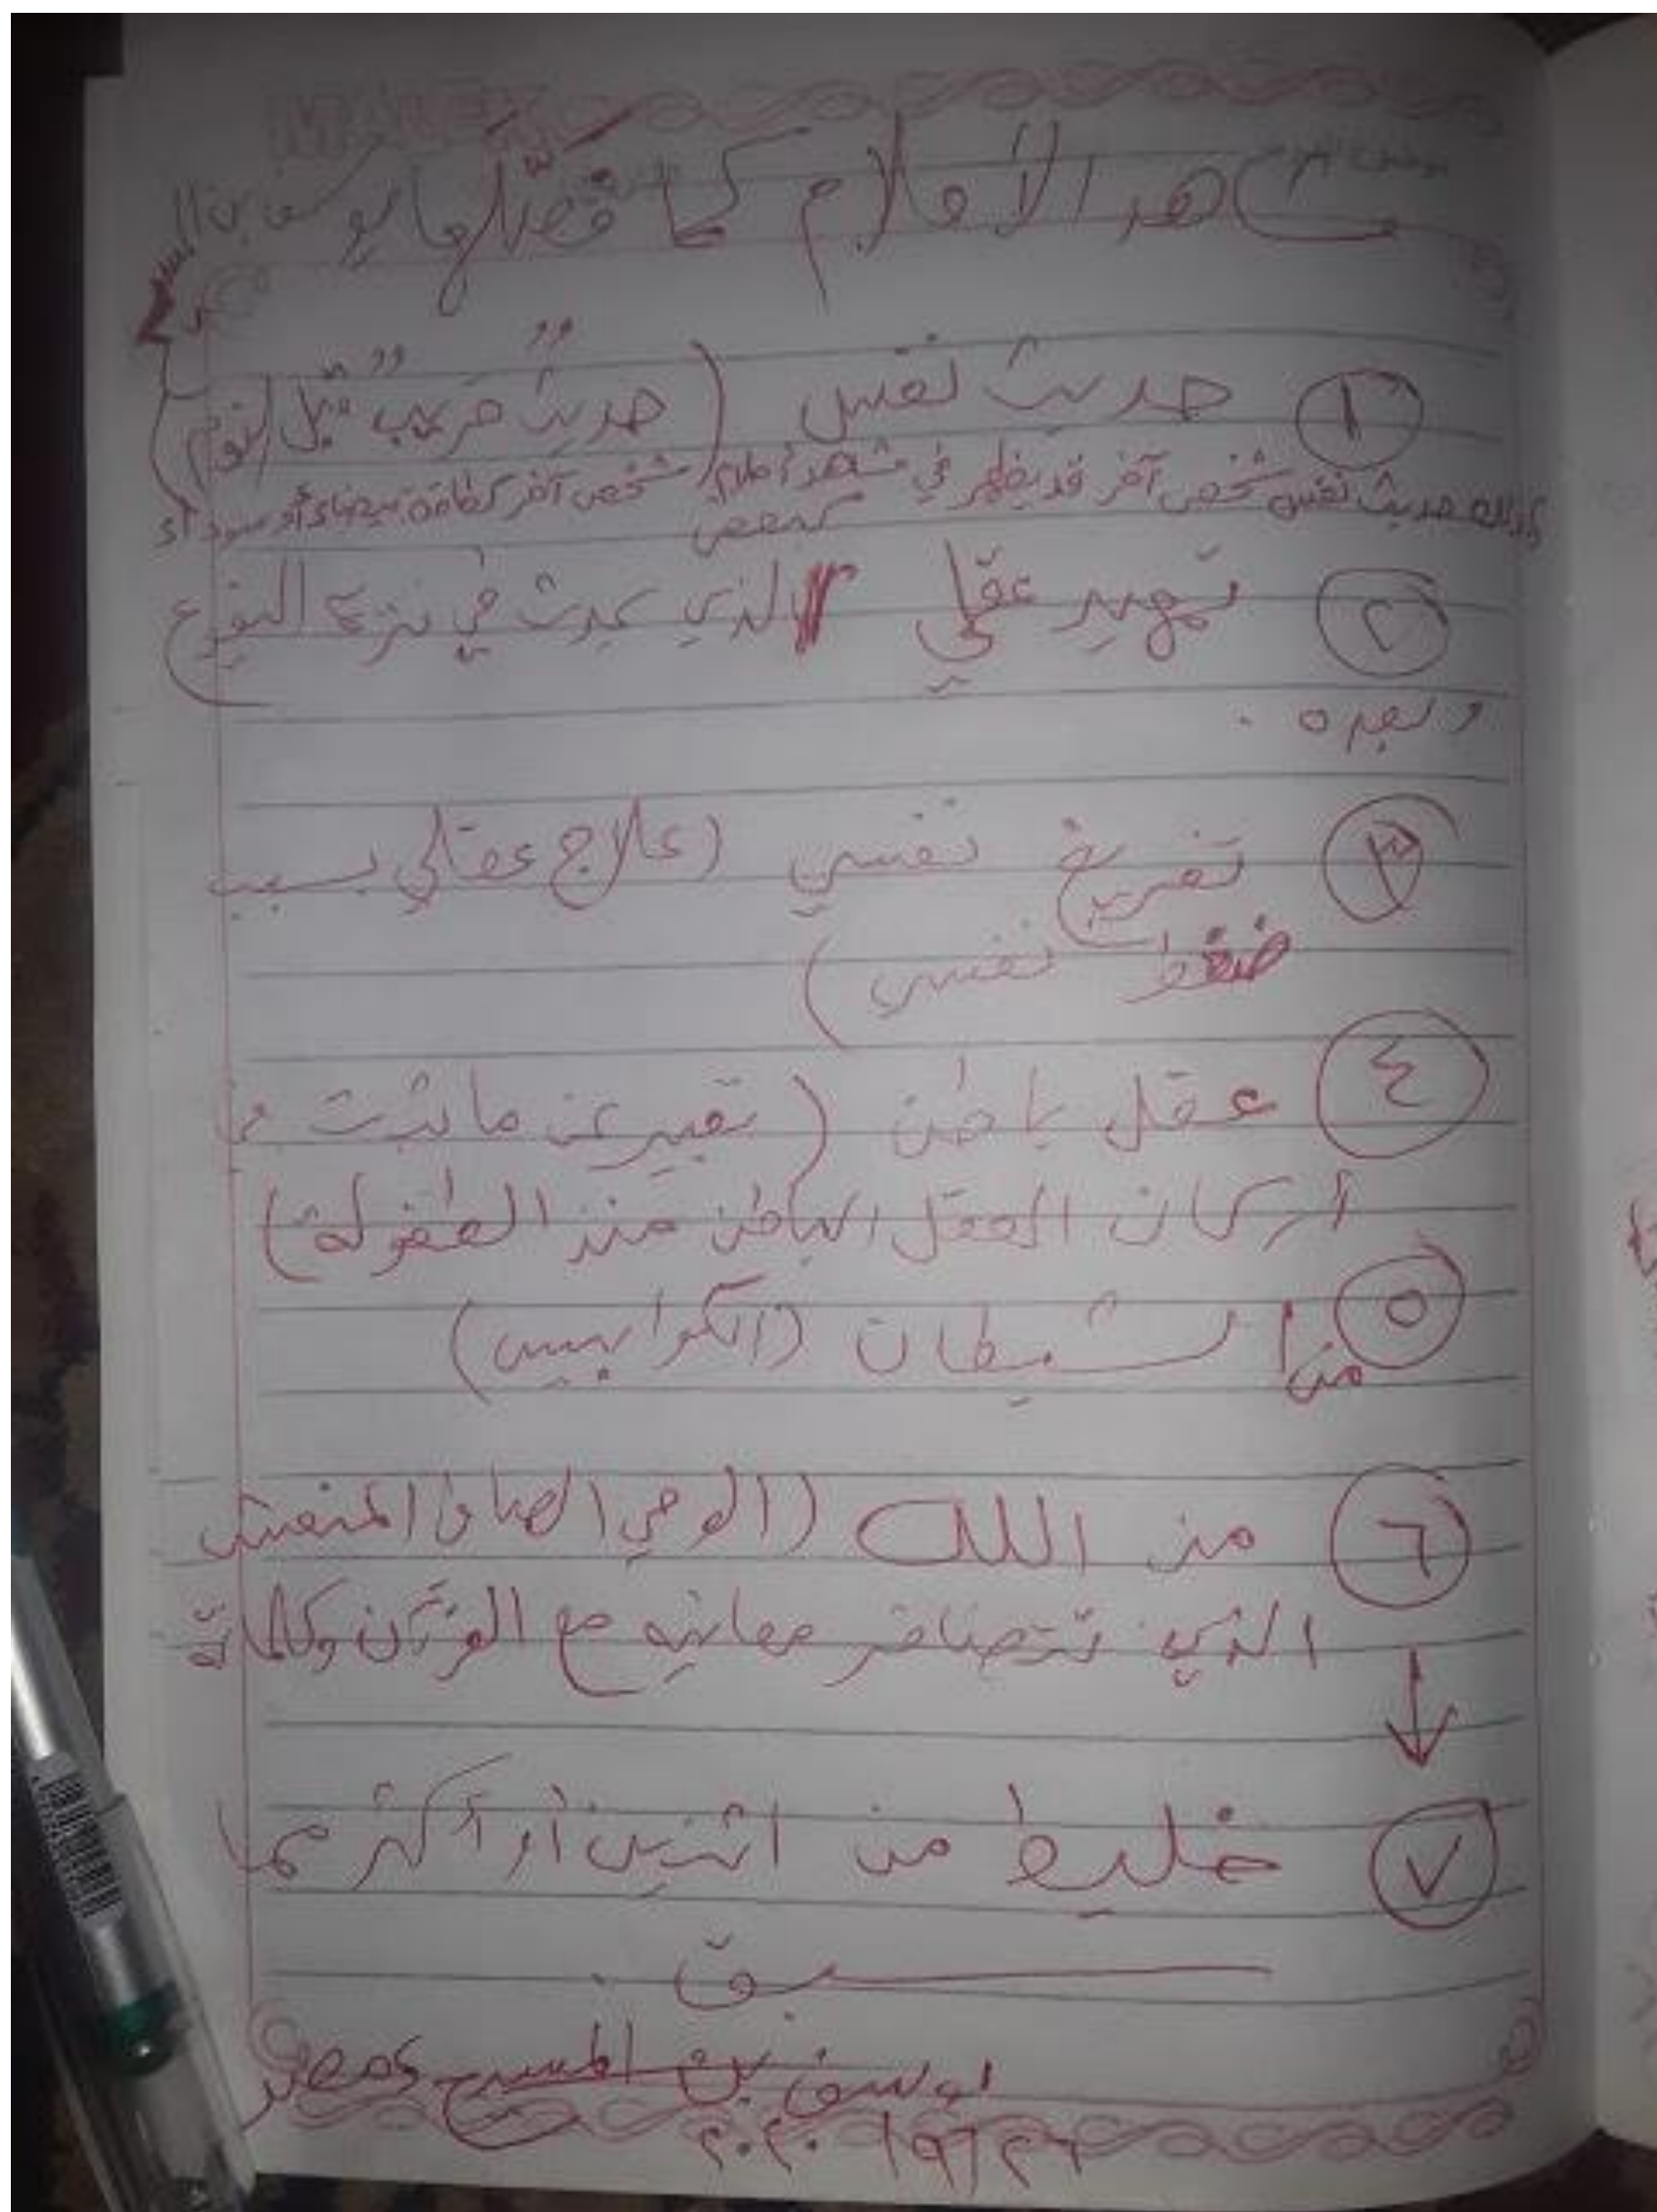 MALEK
مشاهد الأحلام كما فصّلها يوسف بن المسيح
١ حديث نفس (حديثٌ قريبٌ قبل النوم)
كذلك حديث نفس شخص آخر قد يظهر في مشهد أحلام شخص آخر كطاقة بيضاء أو سوداء
كمغص
٢ تمهيد عقلي الذي يحدث في نزع النوع
وبعده .
٣ تفريغ نفسي (علاج عقلي بسبب
ضغط نفسي)
٤ عقل باطن (تعبير عن ما ثبت في
أركان العقل الباطن منذ الطفولة)
٥ من الشيطان (الكوابيس)
٦ من الله (الوحي الصافي المنعش
الذي تتضافر معانيه مع القرآن وكلماته
٧ خليط من اثنين أو أكثر مما
سبق .
يوسف بن المسيح ، مصر
٢٦/٩/٢٠٢٠